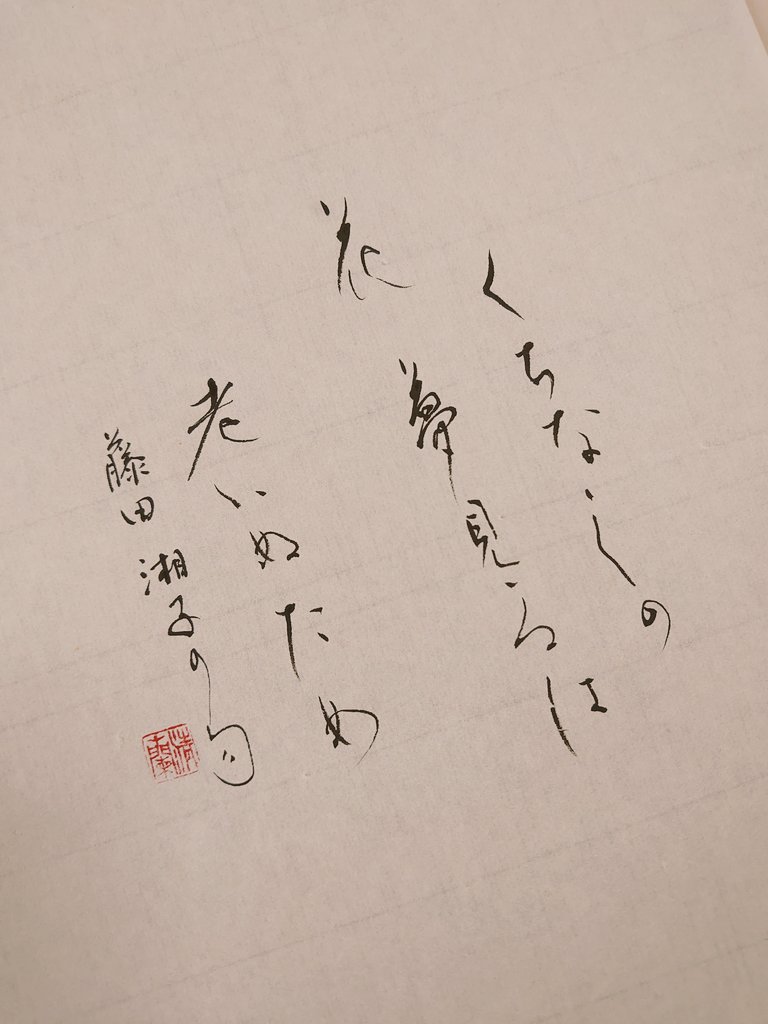 くちなしの
花夢見るは
老いぬため
藤田湘子の句
清蘭